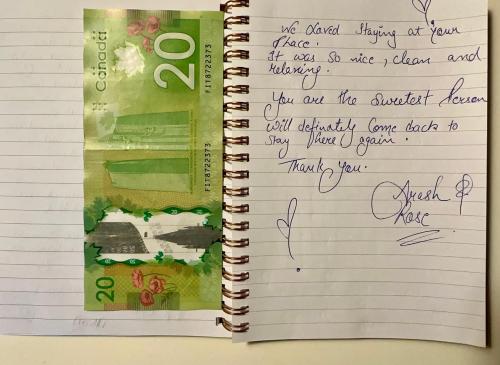 Canada
20
FIT8722373
FIT8722373
20
We Loved Staying at your
Place.
It was so nice, clean and
relaxing.
You are the sweetest Person
will definately Come back to
Stay here again.
Thank you.
Arash &
Rose